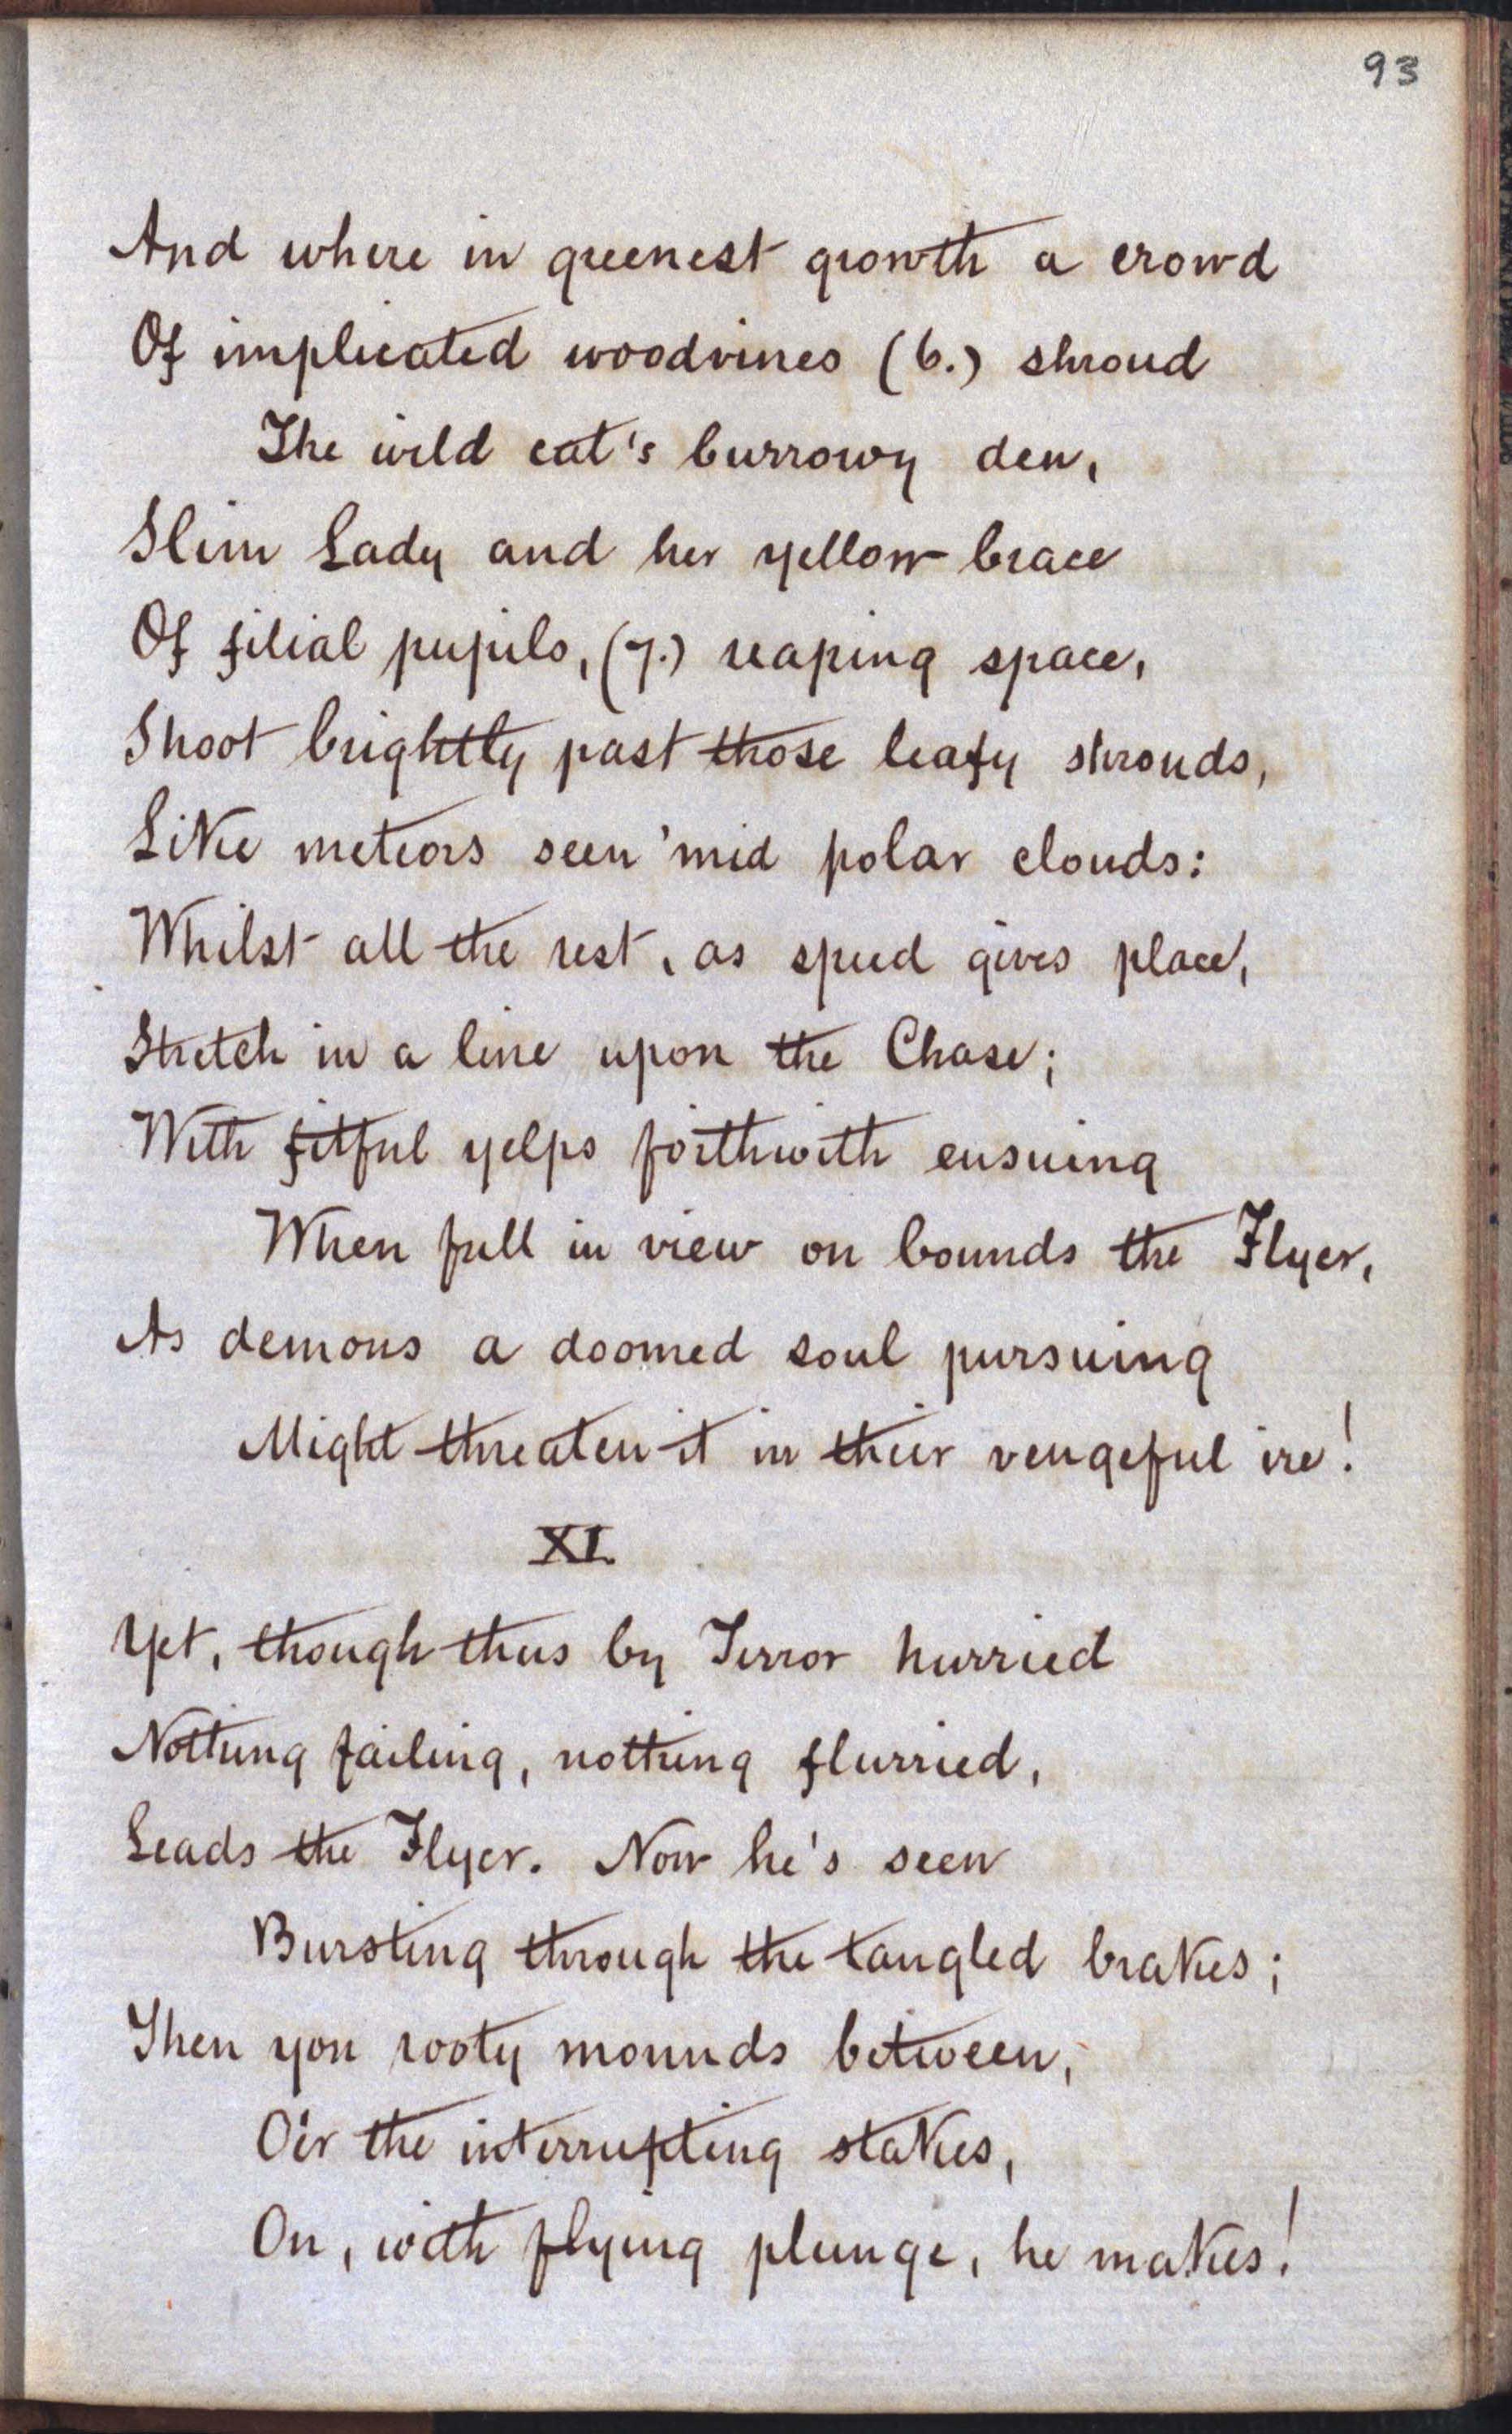 93
And where in greenest growth a crowd
Of implicated woodvines (6.) shroud
The wild cat's burrowy den,
Slim Lady and her yellow brace
Of filial pupils, (7.) reaping space,
Shoot brightly past those leafy shrouds,
Like meteors seen 'mid polar clouds:
Whilst all the rest, as speed gives place,
Stretch in a line upon the Chase;
With fitful yelps forthwith ensuing
When full in view on bounds the Flyer,
As demons a doomed soul pursuing
Might threaten it in their vengeful ire!
XI.
Yet, though thus by Terror hurried
Nothing failing, nothing flurried,
Leads the Flyer. Now he's seen
Bursting through the tangled brakes;
Then yon rooty mounds between,
O'er the interrupting stakes,
On, with flying plunge, he makes!